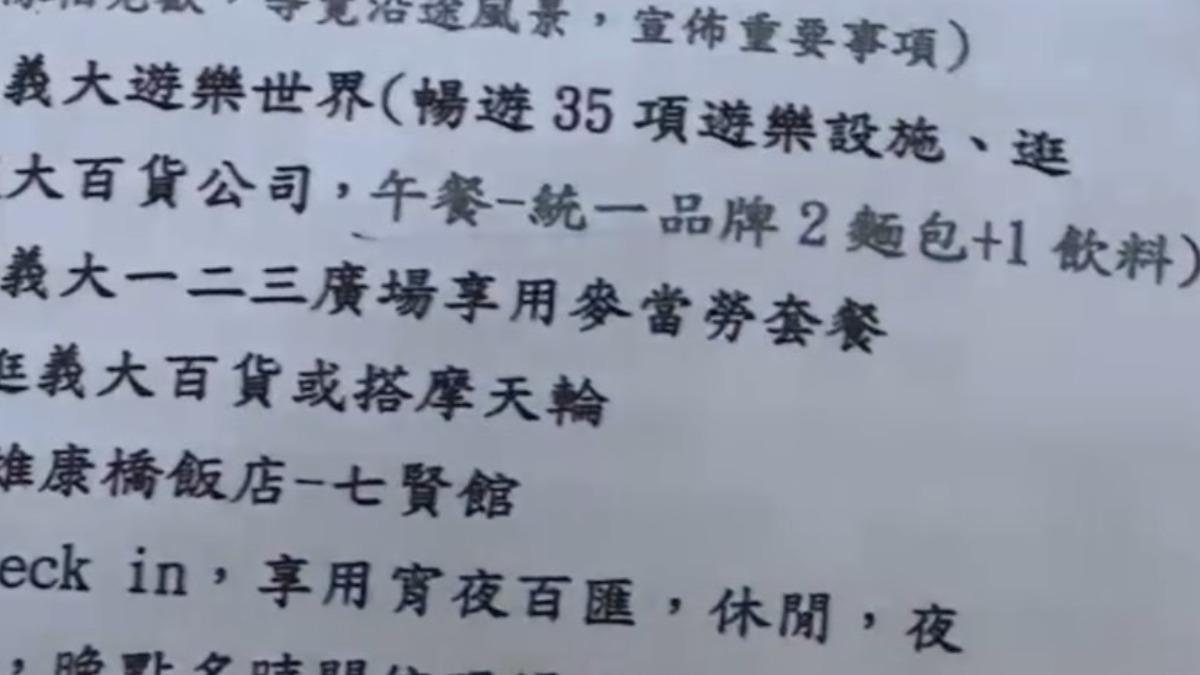 覽沿途風景，宣佈重要事項)
義大遊樂世界(暢遊 35 項遊樂設施、逛
大百貨公司，午餐-統一品牌 2 麵包+1 飲料)
義大一二三廣場享用麥當勞套餐
逛義大百貨或搭摩天輪
雄康橋飯店-七賢館
eck in，享用宵夜百匯，休閒，夜
，晚點名時間